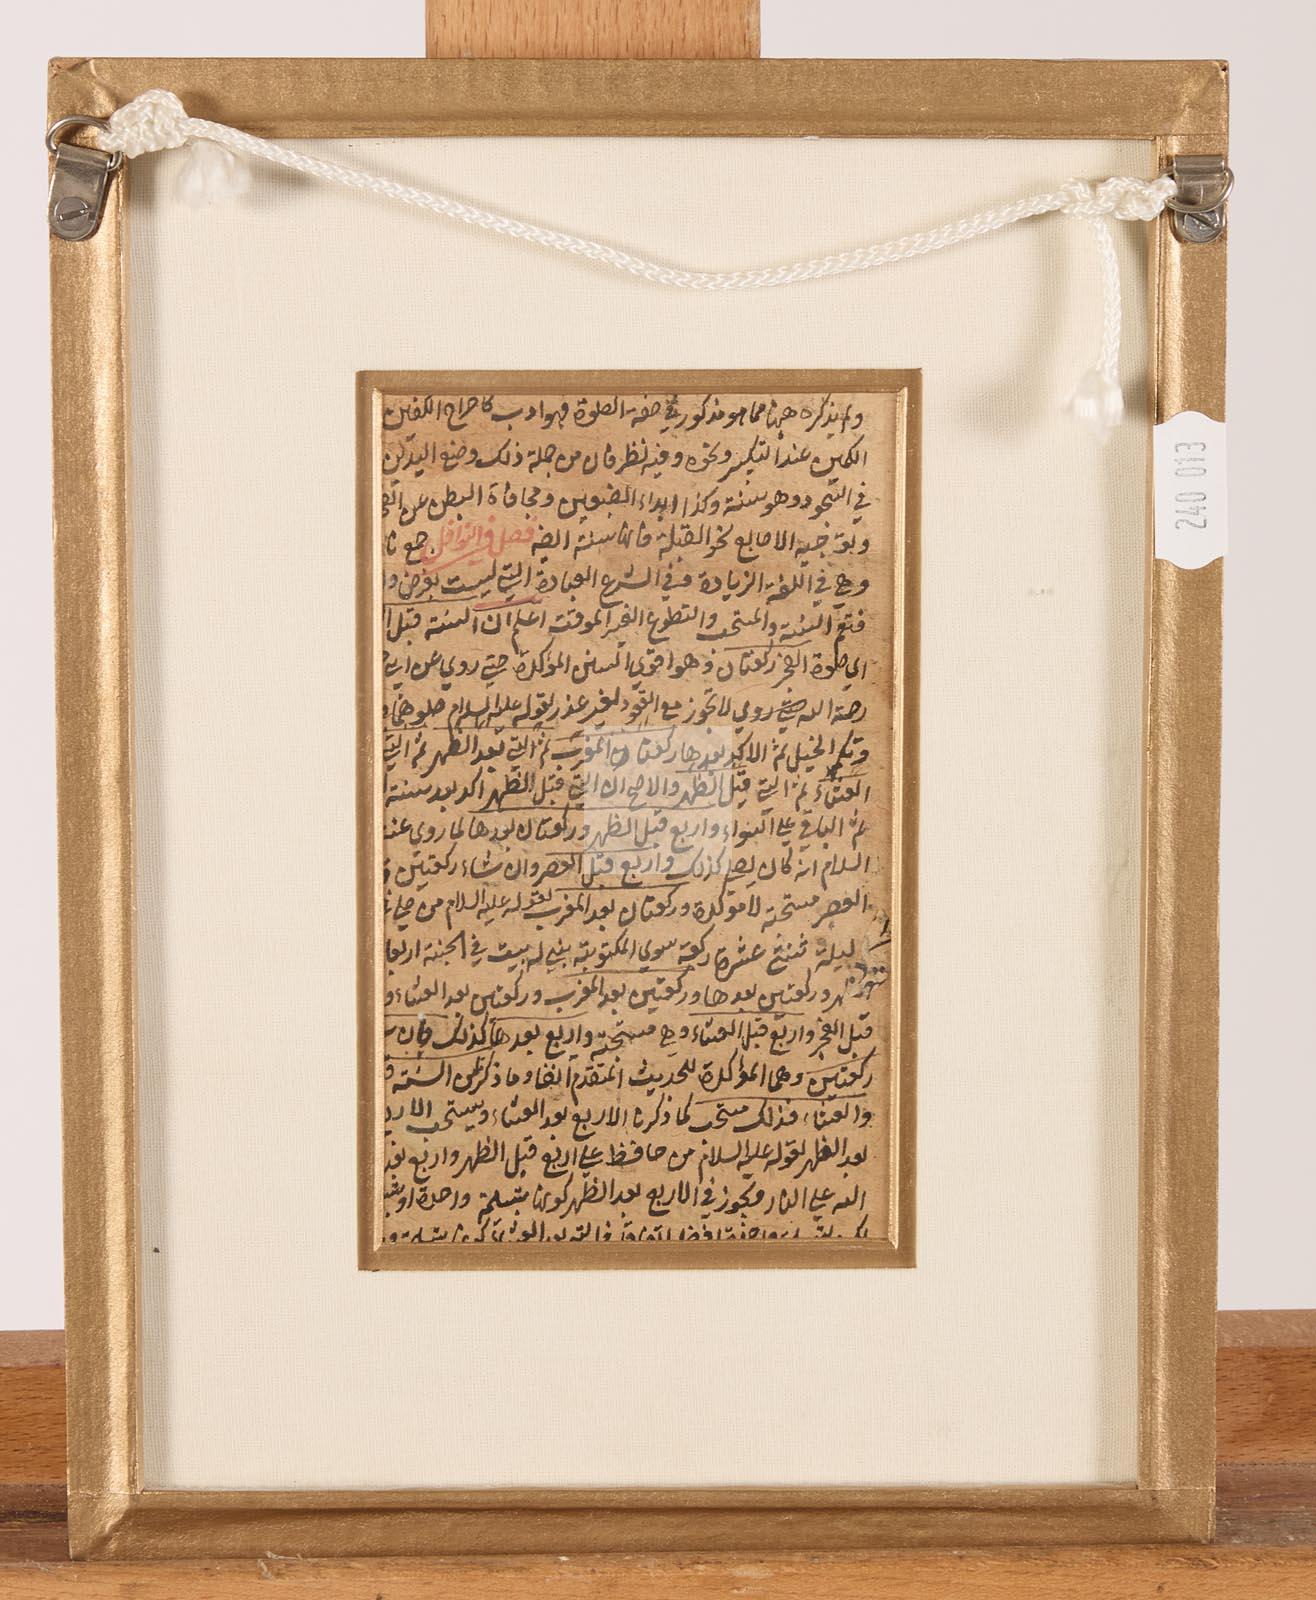 ولم يذكره ههنا مما هو مذكور في صفة الصلوة فهو ادب كاخراج الكفين
الكمين عند التكبير ونحوه وفيه نظر فان من جملة ذلك وضع اليدين
في السجود وهو سنة وكذا ابداء الضبعين ومجافاة البطن عن
وتوجيه الاصابع نحو القبلة فانها سنة ايضا فصل في النوافل جمع
وهي في اللغة الزيادة وفي الشرع العبادة التي ليست بفرض
فتعم السنة والمستحب والتطوع الغير الموقت اعلم ان السنة قبل
اي صلوة الفجر ركعتان وهو اقوي السنن المؤكدة حتى روي عن
رحمة الله حتى روي لا تجوز مع القعود لغير عذر لقوله عليه السلام صلوهما
الخيل ثم الاكد بعدها ركعتان المغرب ثم التي بعد الظهر ثم التي
العشاء ثم التي قبل الظهر والاصح ان التي قبل الظهر اكد بعد سنة
ثم الباقي على السواء واربع قبل الظهر وركعتان بعدها لما روي عنه
السلام انه كان يصلي كذلك واربع قبل العصر وان شاء ركعتين
العصر مستحبة لا مؤكدة وركعتان بعد المغرب لقوله عليه السلام من صلى
ليلة ثنتي عشرة ركعة سوي المكتوبة بني له بيت في الجنة اربعا
وركعتين بعدها وركعتين بعد المغرب وركعتين بعد العشاء
قبل الفجر واربع قبل العشاء وهي مستحبة واربع بعدها كذلك وان
ركعتين وهما المؤكدة للحديث المتقدم انفا وما ذكر من السنة
والعشاء فذلك مستحب كما ذكرنا الاربع بعد العشاء ويستحب
بعد الظهر لقوله عليه السلام من حافظ على اربع قبل الظهر واربع
الله على النار ويجوز في الاربع بعد الظهر كونها بتسليمة واحدة
240 013